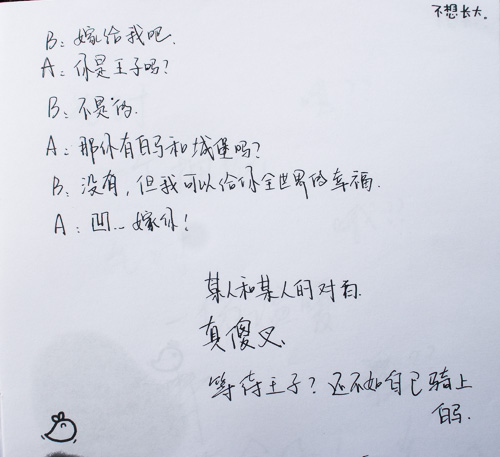 不想长大.
B: 嫁给我吧.
A: 你是王子吗?
B: 不是的.
A: 那你有白马和城堡吗?
B: 没有, 但我可以给你全世界的幸福.
A: 凹... 嫁你!
某人和某人的对白.
真傻叉.
等待王子? 还不如自己骑上
白马.